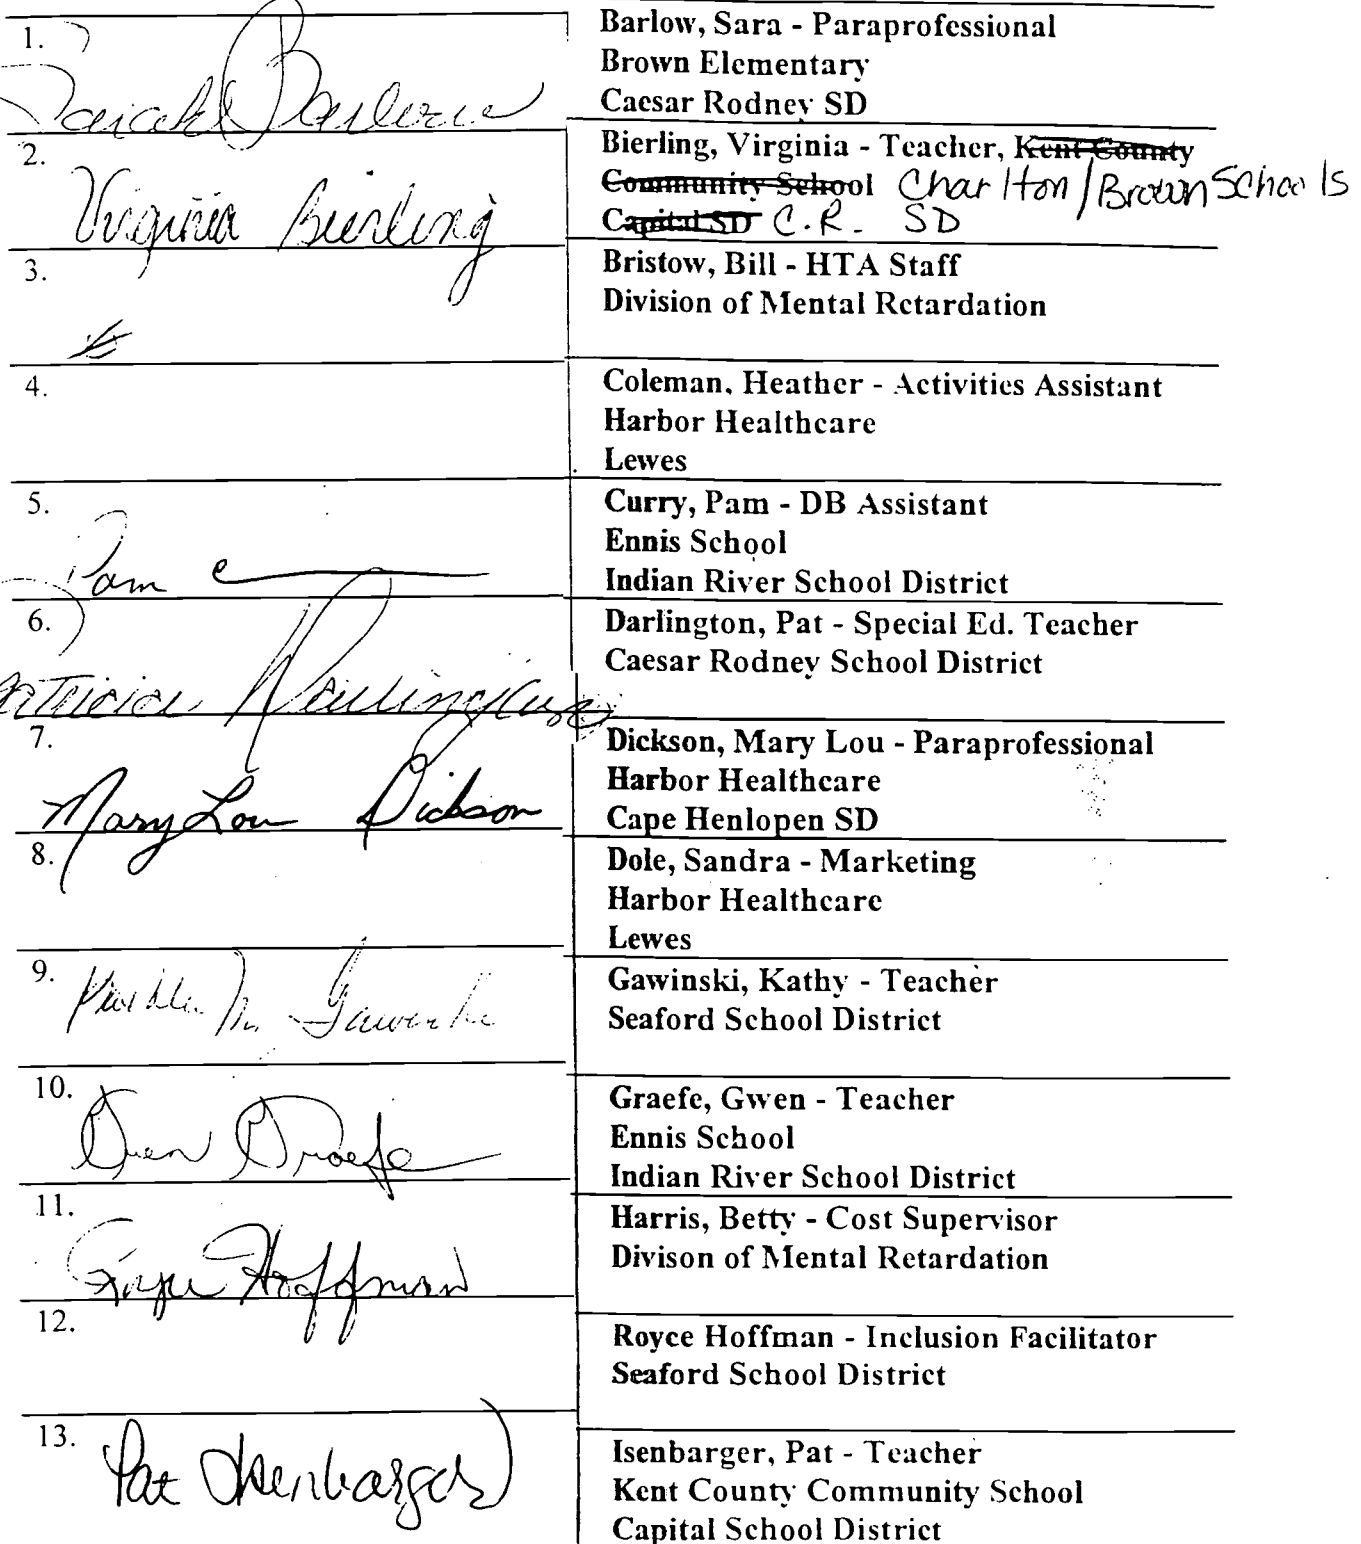 1.
Sarah Barlow
Barlow, Sara - Paraprofessional
Brown Elementary
Caesar Rodney SD
2.
Virginia Bierling
Bierling, Virginia - Teacher, Kent County
Community School Charlton/Brown Schools
Capital SD C.R. SD
3.
Bristow, Bill - HTA Staff
Division of Mental Retardation
4.
Coleman, Heather - Activities Assistant
Harbor Healthcare
Lewes
5.
Pam C
Curry, Pam - DB Assistant
Ennis School
Indian River School District
6.
Patricia Darlington
Darlington, Pat - Special Ed. Teacher
Caesar Rodney School District
7.
Mary Lou Dickson
Dickson, Mary Lou - Paraprofessional
Harbor Healthcare
Cape Henlopen SD
8.
Dole, Sandra - Marketing
Harbor Healthcare
Lewes
9.
M. Gawinski
Gawinski, Kathy - Teacher
Seaford School District
10.
Gwen Graefe
Graefe, Gwen - Teacher
Ennis School
Indian River School District
11.
Hoffman
Harris, Betty - Cost Supervisor
Divison of Mental Retardation
12.
Royce Hoffman - Inclusion Facilitator
Seaford School District
13.
Pat Isenbarger
Isenbarger, Pat - Teacher
Kent County Community School
Capital School District